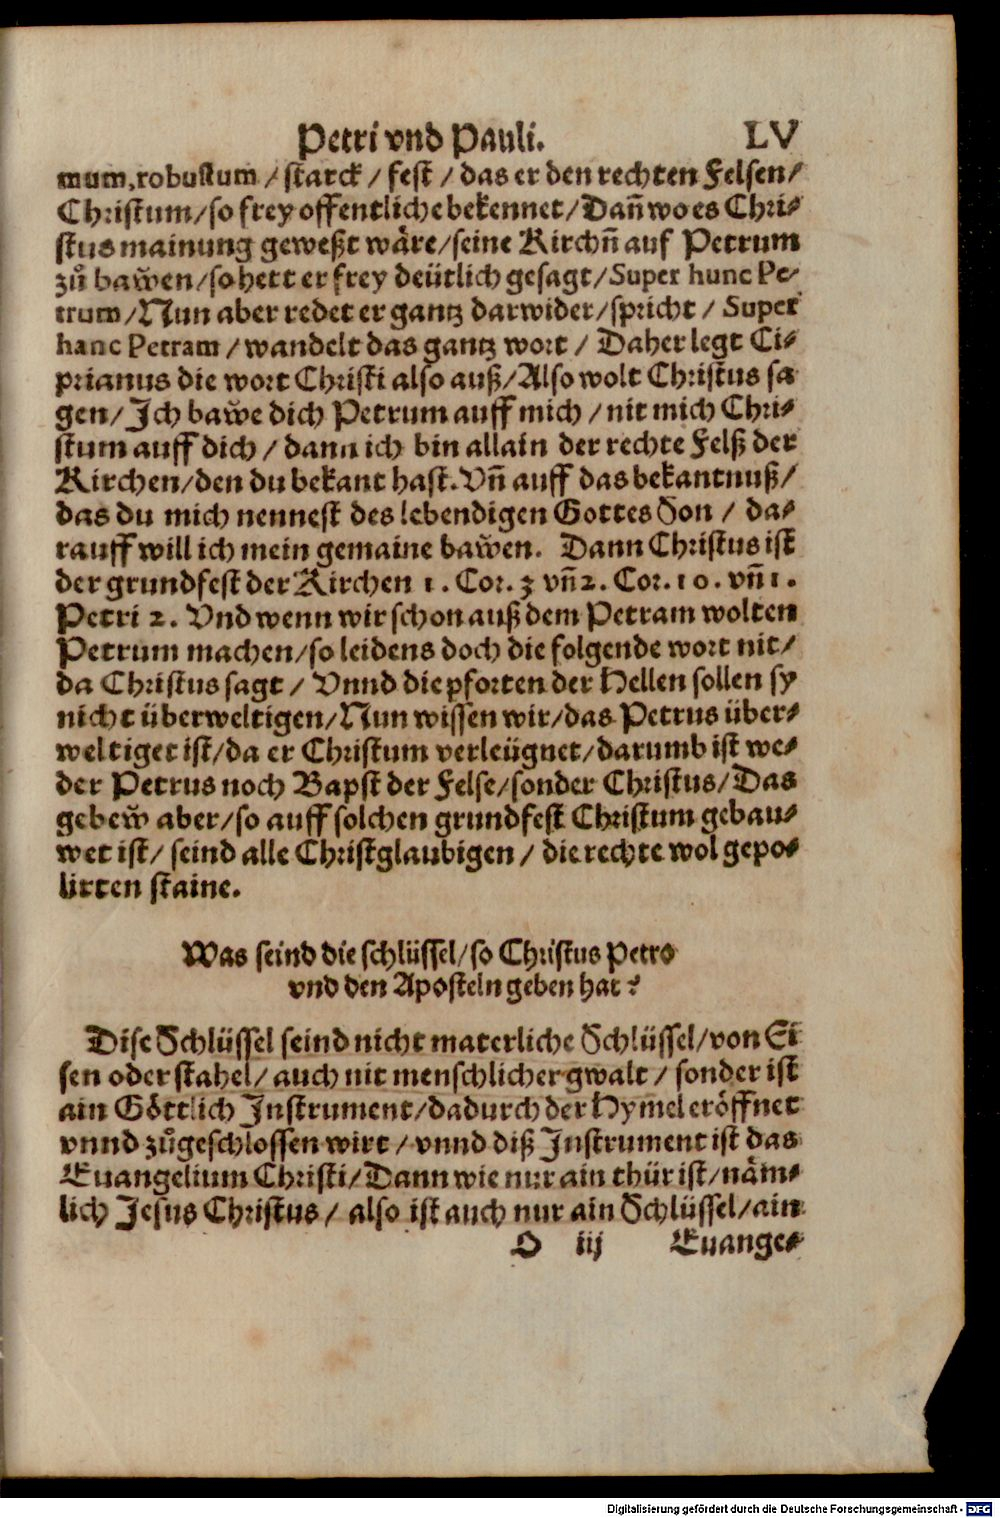 Petri vnd Pauli. LV
mum, robustum / starck / fest / das er den rechten Felsen/
Christum/so frey offentliche bekennet/Dañ wo es Chri-
stus mainung geweßt wäre/seine Kirchñ auf Petrum
zů baẘen/so hett er frey deütlich gesagt/Super hunc Pe-
trum/Nun aber redet er gantz darwider/spricht / Super
hanc Petram /wandelt das gantz wort / Daher legt Ci-
prianus die wort Christi also auß/Also wolt Christus sa
gen/ Ich baẘe dich Petrum auff mich /nit mich Chri-
stum auff dich / dann ich bin allain der rechte Felß der
Kirchen/den du bekant hast. Vñ auff das bekantnuß/
das du mich nennest des lebendigen Gottes Son / da-
rauff will ich mein gemaine baẘen. Dann Christus ist
der grundfest der Kirchen 1. Cor. 3 vñ 2. Cor. 10. vñ 1.
Petri 2. Vnd wenn wir schon auß dem Petram wolten
Petrum machen/so leidens doch die folgende wort nit/
da Christus sagt / Vnnd die pforten der Hellen sollen sy
nicht überweltigen/Nun wissen wir/das Petrus über-
weltiget ist/da er Christum verleügnet/darumb ist we-
der Petrus noch Bapst der Felse/sonder Christus/Das
gebeẘ aber/so auff solchen grundfest Christum gebau-
wet ist/ seind alle Christglaubigen / die rechte wol gepo-
lirten staine.
Was seind die schlüssel/so Christus Petro
vnd den Aposteln geben hat?
Dise Schlüssel seind nicht materliche Schlüssel/von Ei
sen oder stahel/ auch nit menschlicher gwalt / sonder ist
ain Göttlich Instrument/dadurch der Hym̃el eröffnet
vnnd zůgeschlossen wirt / vnnd diß Instrument ist das
Euangelium Christi/Dann wie nur ain thür ist/näm-
lich Jesus Christus / also ist auch nur ain Schlüssel/ain
O iij Euange-
Digitalisierung gefördert durch die Deutsche Forschungsgemeinschaft - DFG